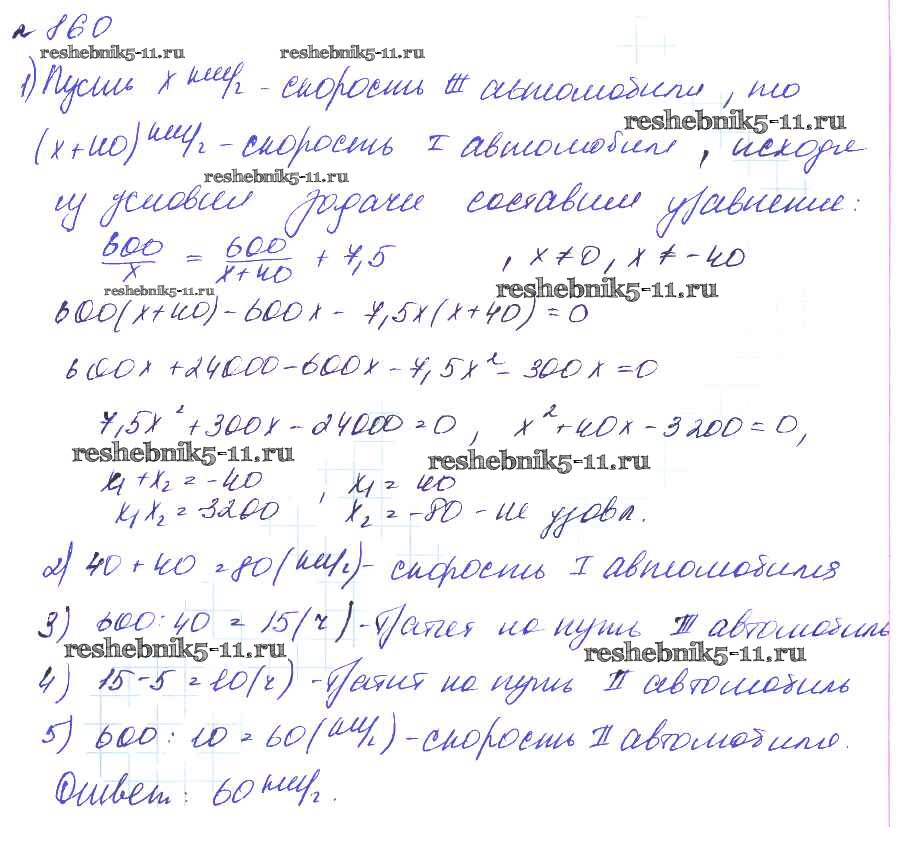 № 860
reshebnik5-11.ru reshebnik5-11.ru
1) Пусть x км/ч - скорость III автомобиля, то
reshebnik5-11.ru
(x+40) км/ч - скорость I автомобиля, исходя
reshebnik5-11.ru
из условия задачи составим уравнение:
600/x = 600/(x+40) + 7,5 , x ≠ 0, x ≠ -40
reshebnik5-11.ru reshebnik5-11.ru
600(x+40) - 600x - 7,5x(x+40) = 0
600x + 24000 - 600x - 7,5x² - 300x = 0
7,5x² + 300x - 24000 = 0, x² + 40x - 3200 = 0,
reshebnik5-11.ru reshebnik5-11.ru
x₁ + x₂ = -40 , x₁ = 40
x₁x₂ = -3200 x₂ = -80 - не удовл.
2) 40 + 40 = 80 (км/ч) - скорость I автомобиля
3) 600 : 40 = 15 (ч) - тратит на путь III автомобиль
reshebnik5-11.ru reshebnik5-11.ru
4) 15 - 5 = 10 (ч) - тратит на путь II автомобиль
5) 600 : 10 = 60 (км/ч) - скорость II автомобиля.
Ответ: 60 км/ч.